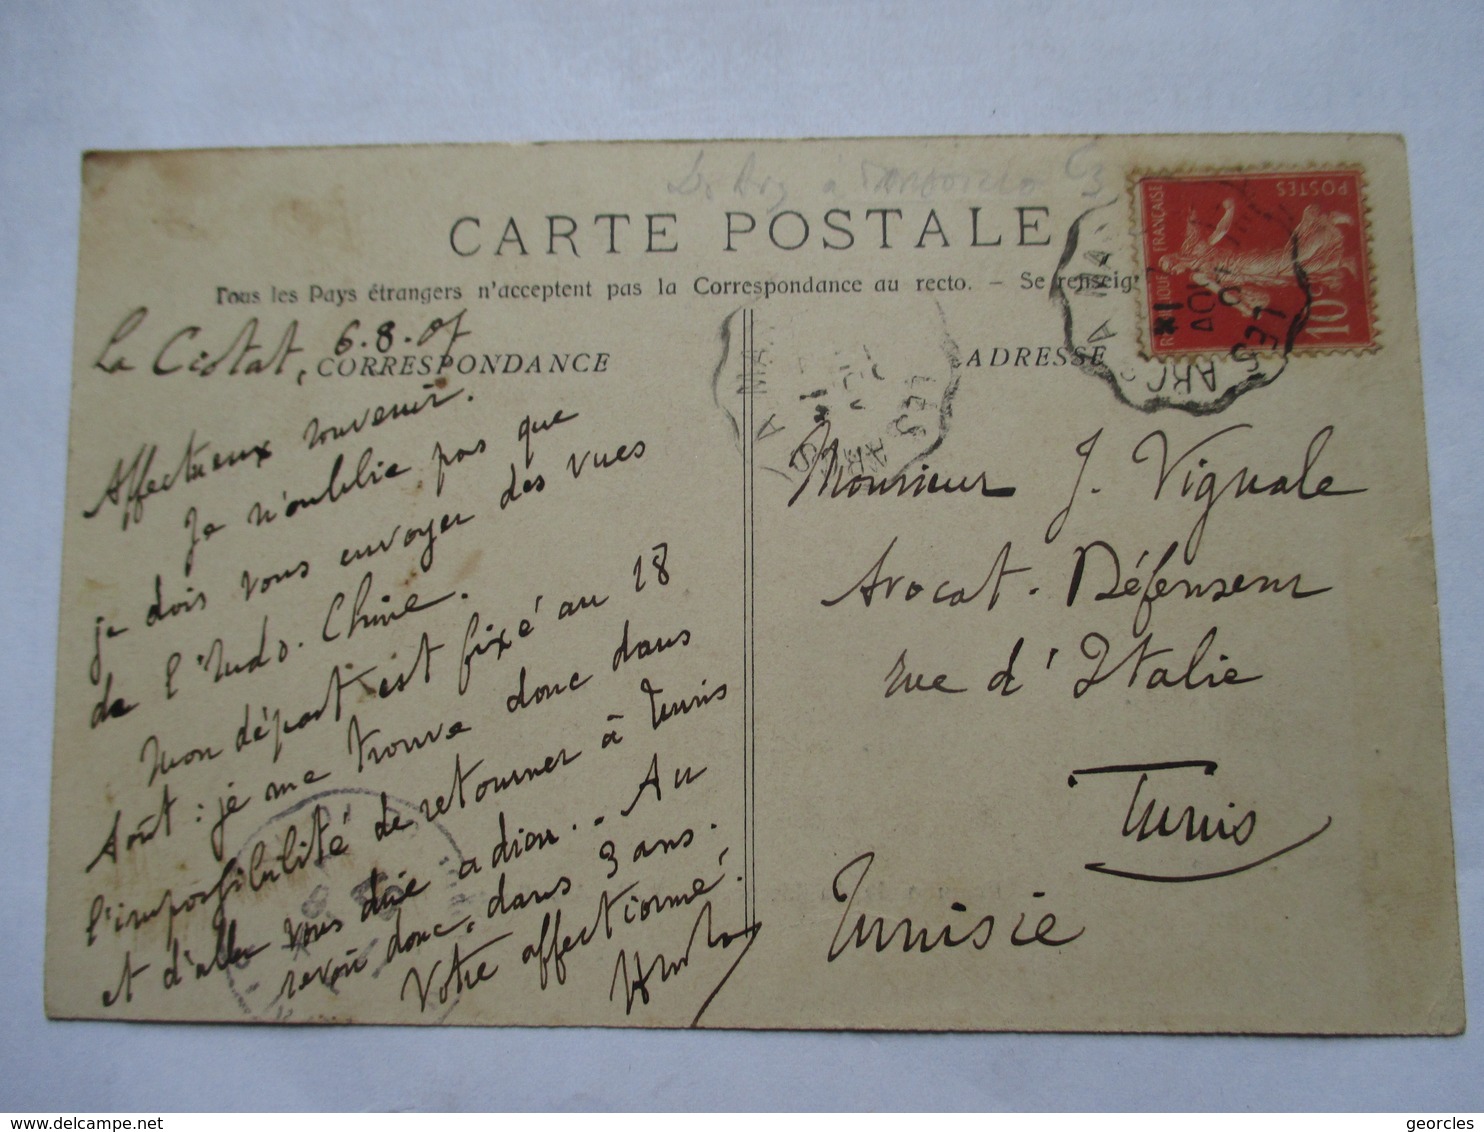 CARTE POSTALE
Tous les Pays étrangers n'acceptent pas la Correspondance au recto. – Se renseig
La Ciotat, 6.8.07
CORRESPONDANCE
Affectueux souvenir.
Je n'oublie pas que
je dois vous envoyer des vues
de l'Indo-Chine.
Mon départ est fixé au 18
Août : je me trouve donc dans
l'impossibilité de retourner à Tunis
et d'aller vous dire adieu.. Au
revoir donc, dans 3 ans.
Votre affectionné.
ADRESSE
Monsieur J. Viguale
Avocat-Défenseur
rue d'Italie
Tunis
Tunisie
FRANÇAISE
POSTES
10c
LES ARCS A MA
LES ARCS A MA
georcles